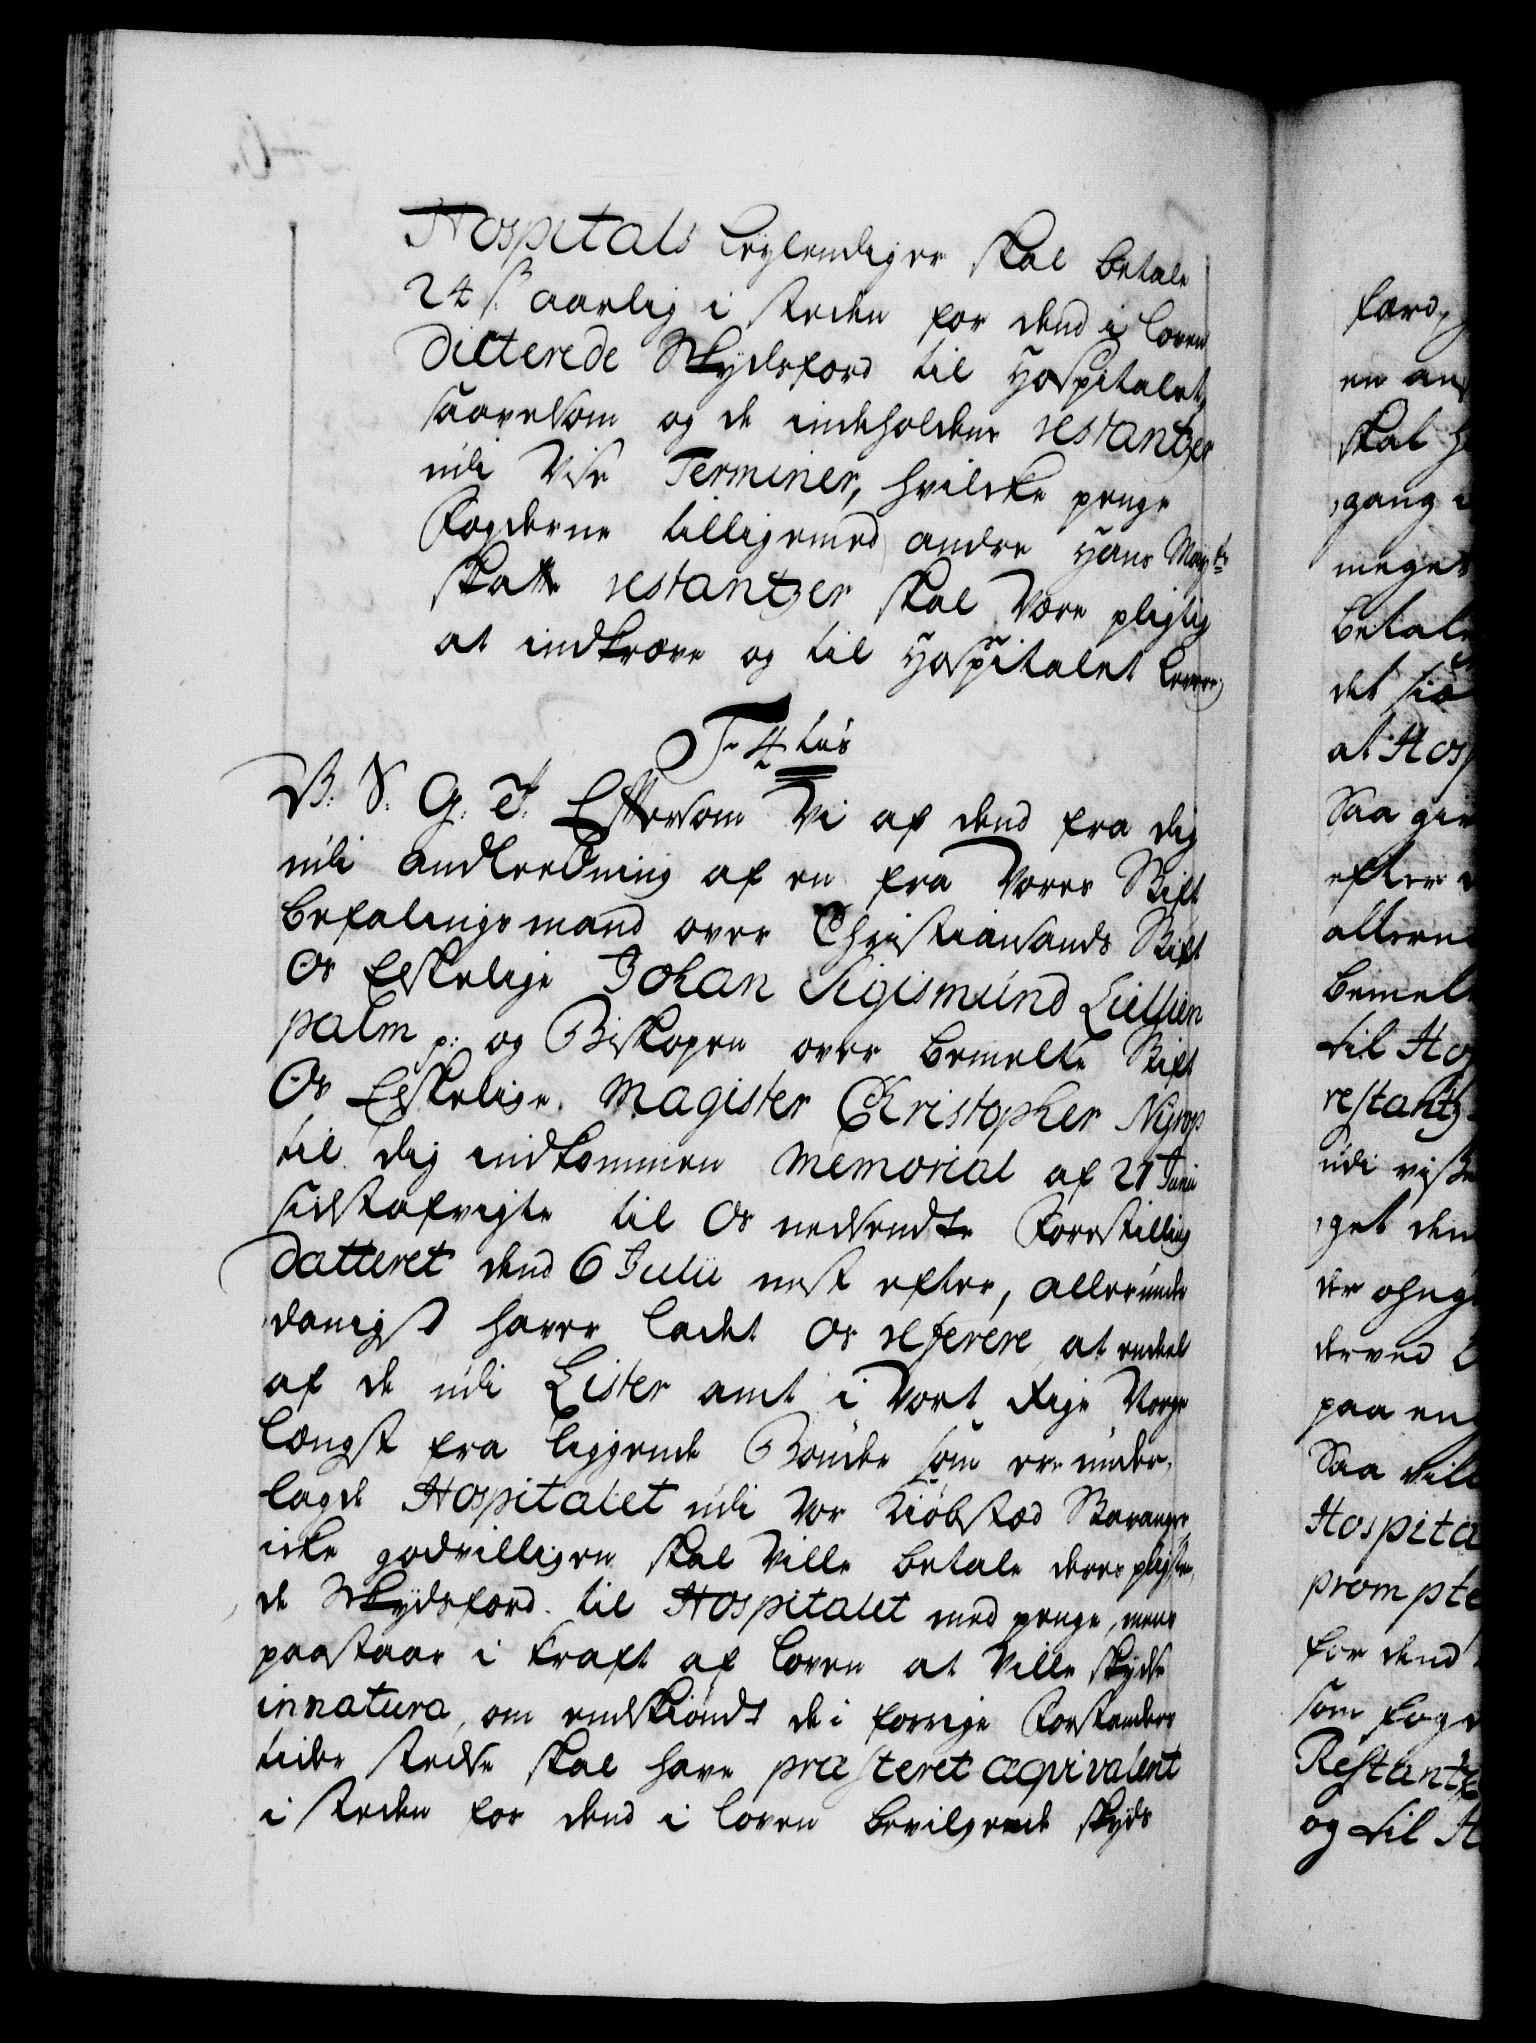 Hospitals leylendiger skal betale
24 s. aarlig i steden for dend i loven
dicterede Skydsferd til Hospitalet,
saavelsom og de indeholdene restantzer
udi Visse Terminer, hvilcke penge
Fogderne tilligemed andre Hans May:ts
skatte restantzer skal Være pligtig
at indkræve og til Hospitalet levere
F. 4 tus
V. S. G. T. Eftersom Vi af dend fra dig
udi andledning af en fra Vores Stift
befalingsmand over Christiansands Stift
Os Elskelige Johan Sigismund Lillien
palm p: og Biskopen over bemelte Stift
Os Elskelige Magister Christopher Nyrop
til dig indkommen Memorial af 21 Junii
sidstafvigte til Os nedsendte Forestilling
datteret dend 6 Julii nest efter, allerunder
danigst haver ladet Os referere, at endeel
af de udi Lister amt i Vort Rige Norge
længst fra liggende Bønder som ere under,
lagde Hospitalet udi Vor Kiöbstæd Stavanger
icke godvilligen skal Ville betale deres pligten,
de Skydsferd til Hospitalet med penge, mens
paastaar i kraft af loven at Ville skydse
in natura, om endskiöndt de i forrige Forstanders
tider stedse skal have præsteret æqvivalent
i steden for dend i loven bevilgende skyds
færd,
en an
skal h
gang
meget
betale
det siø
at Hosp
Saa giv
efter
allern
bemel
til Ho
restantz
udi viss
get den
der
derved
paa en
Saa vil
Hospita
prompte
for dend
som fog
Restantz
og til H